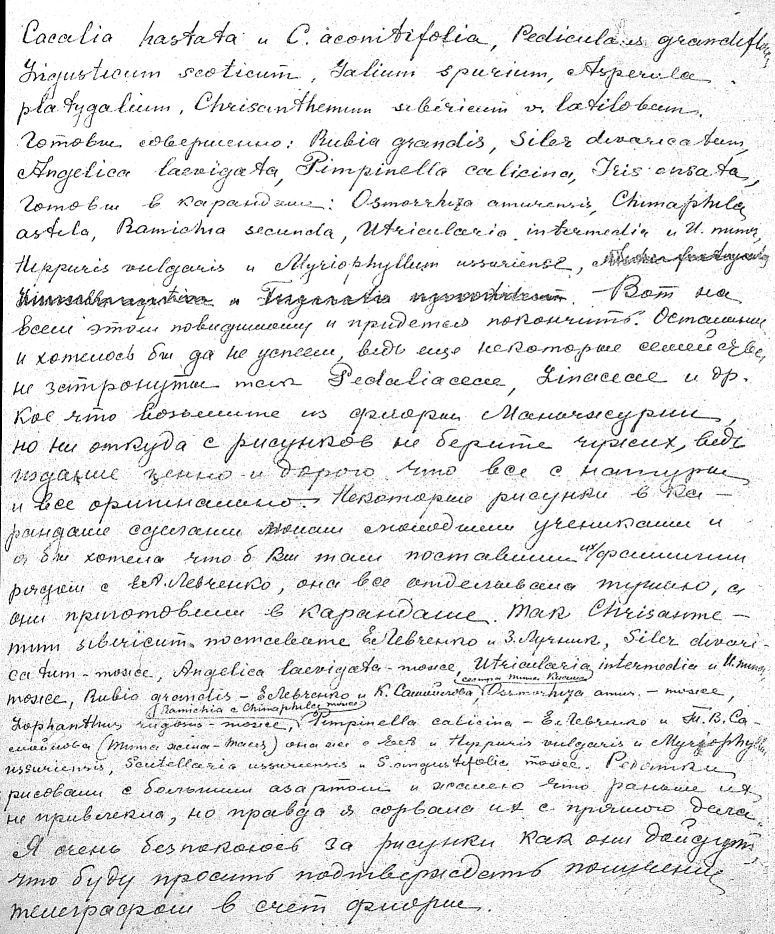 Cacalia hastata и C. aconitifolia, Pedicularis grandiflora,
Lingusticum scoticum, Galium spurium, Asperula
platygalium, Chrisanthemum sibiricum v. latilobum.
Готовы совершенно: Rubia grandis, Siler divaricatum,
Angelica laevigata, Pimpinella calicina, Iris ensata,
Готовы в карандаше: Osmorrhiza amurensis, Chimaphila
astila, Ramichia secunda, Utricularia intermedia и U. minor,
Hippuris vulgaris и Myriophyllum ussuriense,
и Вот на
всем этом повидимому и придется покончить. Остальные
и хотелось бы да не успеем, ведь еще некоторые семейства
не затронуты как Pedaliaceae, Linaceae и др.
Кое что возьмите из флоры Манчжурии,
но ни откуда с рисунков не берите чужих, ведь
издание ценно и дорого что все с натуры
и все оригинально. Некоторые рисунки в ка-
рандаше сделаны моими ученицами и
я бы хотела что б Вы там поставили их/фамилии
рядом с Е.А.Левченко, она все отделывала тушью, а
они приготовили в карандаше. Так Chrisante-
mum sibiricum поставьте Е.Левченко и З.Лучник, Siler divari-
catum - тоже, Angelica laevigata - тоже, Utricularia intermedia и U. minor
тоже, Rubia grandis - Е.Левченко и К. Osmorhiza amur. - тоже,
Ramichia с Chinaphila тоже
Lophanthus rugosus - тоже, Pimpinella calicina - Е.Левченко и Т.В.Са-
мойлова она же с Е.Л. и Hippuris vulgaris и Myriophyllum
ussuriensis, Scutellaria ussuriensis и S. angustifolia тоже. Ребятки
рисовали с большим азартом и жалею что раньше их
не привлекла, но правда я сорвала их с прямого дела.
Я очень безпокоюсь за рисунки как они дойдут,
что буду просить подтвердить получение
телеграфом в счет флоры.